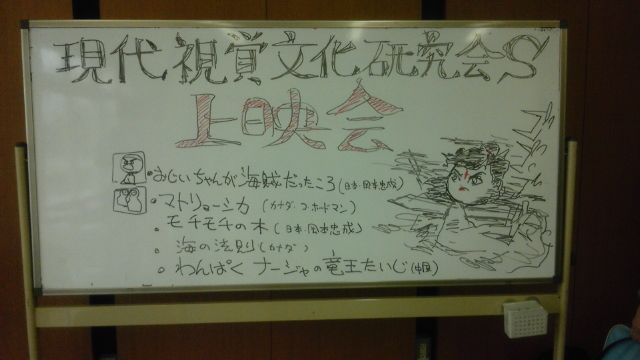 現代視覚文化研究会S
上映会
・おじいちゃんが海賊だったころ(日本:岡本忠成)
・マトリョーシカ(カナダ:コ・ホードマン)
・モチモチの木(日本:岡本忠成)
・海の法則(カナダ)
・わんぱくナージャの竜王たいじ(中国)